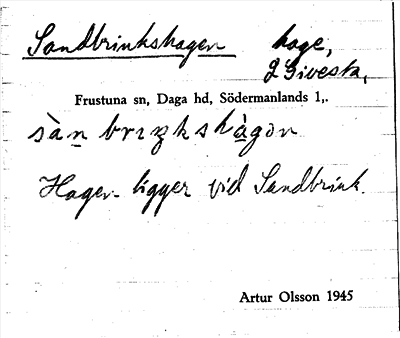 Sandbrinkshagen hage,
Frustuna sn, Daga hd, Södermanlands l,.
sàn briŋkshàgən
Hagen ligger vid Sandbrink.
Artur Olsson 1945